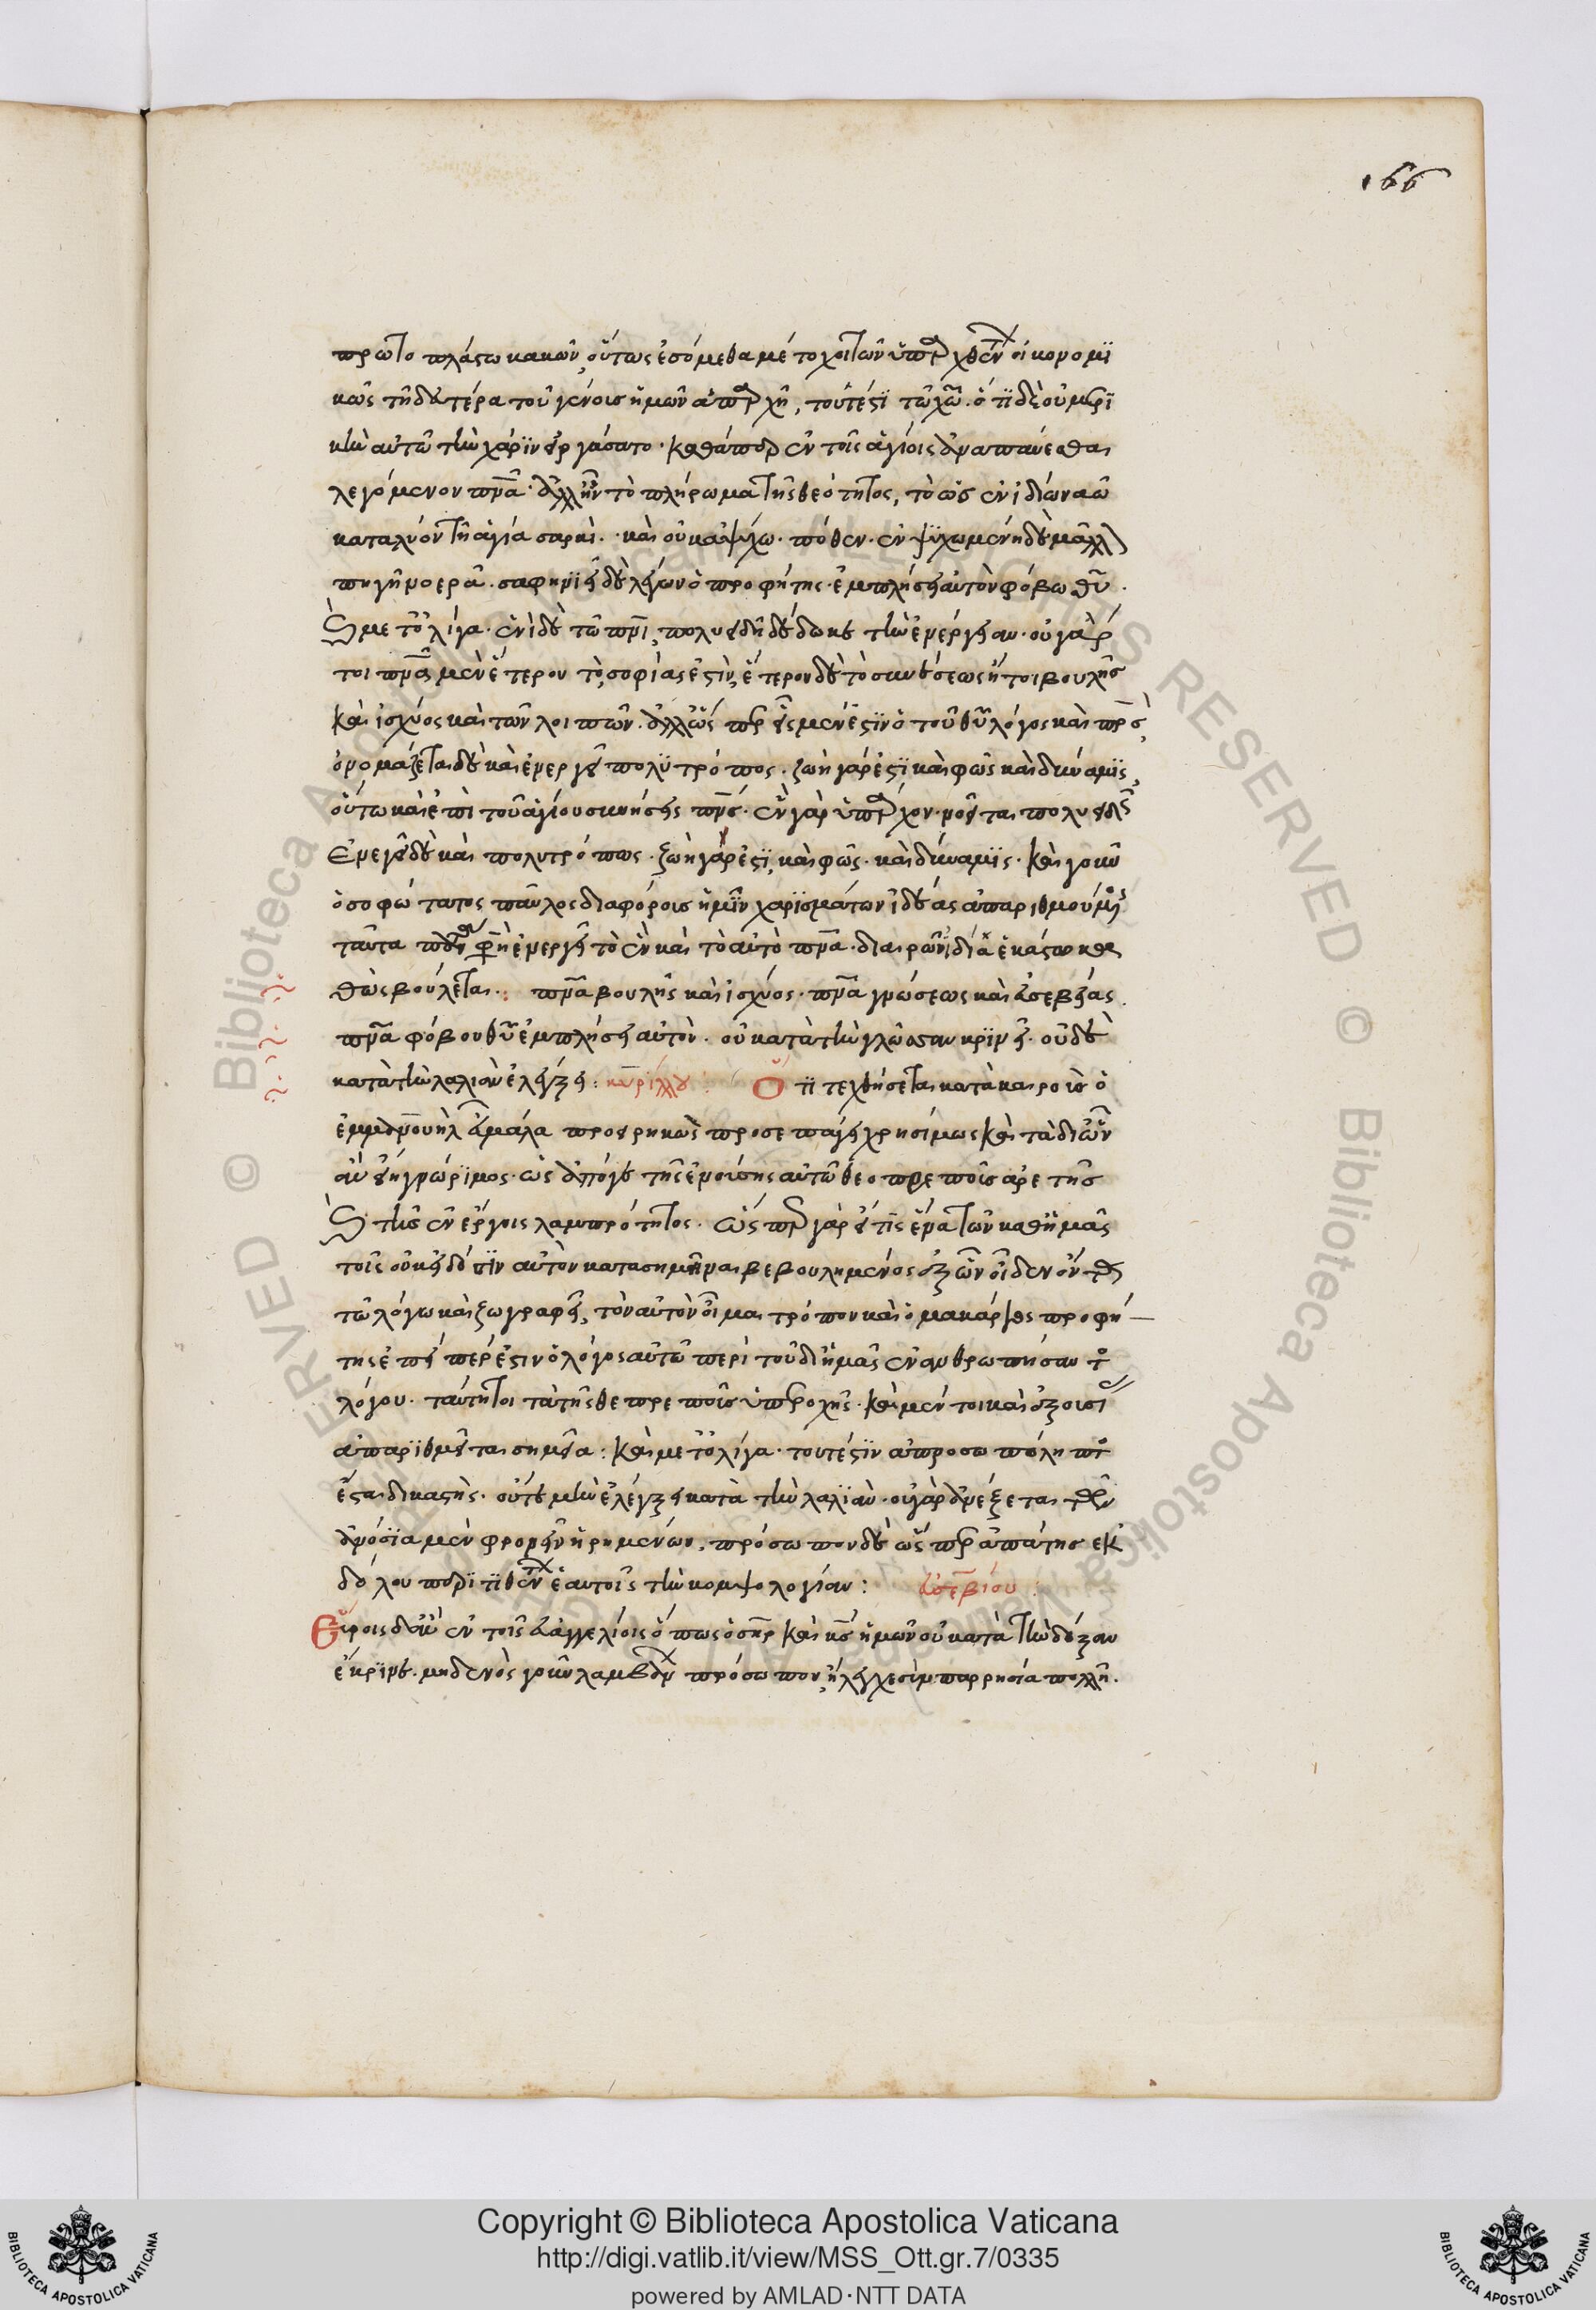 166
πρωτοπλάστω κακῶν, οὕτως ἐσόμεθα μέτοχοι τῶν ὑπαρχθέντων οἰκονομι
κῶς τῇ δευτέρα τοῦ γένους ἡμῶν ἀπαρχῇ, τουτέστι τῶ χῶ. ὅτι δὲ οὐ μερι
κὴν αὐτῶ τὴν χάριν εἰργάσατο· καθάπερ ἐν τοῖς ἁγίοις ἀναπαύεσθαι
λεγόμενον πνᾶ· ἀλλ' ἦν τὸ πλήρωμα τῆς θεότητος, τὸ ὡς ἐν ἰδίω ναῶ
καταλύον τῇ ἁγία σαρκὶ· καὶ οὐκ ἀψύχω· πόθεν· ἐν ψυχωμένη δὲ μᾶλλ
πηγῇ νοερᾶ. σαφηνιεῖ δὲ λέγων ὁ προφήτης· ἐμπλήσει αὐτὸν φόβω θῦ·
καὶ μετ' ὀλίγα· ἑνὶ δὲ τῶ πνι, πολυειδῆ δέδωκε τὴν ἐνέργειαν· οὐ γάρ
τοι πνᾶ μὲν ἕτερον τὸ σοφίας ἐστὶν, ἕτερον δὲ τὸ συνέσεως ἤτοι βουλῆς
καὶ ἰσχύος καὶ τῶν λοιπῶν. ἀλλ' ὥσπερ εἷς μέν ἐστιν ὁ τοῦ θῦ λόγος καὶ πρς,
ὀνομάζεται δὲ καὶ ἐνεργεῖ πολυτρόπως· ζωὴ γάρ ἐστι καὶ φῶς καὶ δύναμις,
οὕτω καὶ ἐπὶ τοῦ ἁγίου συνήσεις πνς· ἓν γὰρ ὑπάρχον· νοεῖται πολυειδῶς
ἐνεργεῖ δὲ καὶ πολυτρόπως· ζωὴ γάρ ἐστι, καὶ φῶς· καὶ δύναμις· καὶ γοῦν
ὁ σοφώτατος παῦλος διαφόρους ἡμῖν χαρισμάτων ἰδέας ἀπαριθμούμενος
ταῦτα πάντα φησὶν ἐνεργεῖ τὸ ἓν καὶ τὸ αὐτὸ πνᾶ· διαιροῦν ἰδία ἑκάστω κα
θὼς βούλεται: πνᾶ βουλῆς καὶ ἰσχύος· πνᾶ γνώσεως καὶ εὐσεβείας.
πνᾶ φόβου θῦ ἐμπλήσει αὐτὸν. οὐ κατὰ τὴν γλῶσσαν κρίνει· οὐδὲ
κατὰ τὴν λαλιὰν ἐλέγξει: κυρίλλου: Ὅτι τεχθήσεται κατὰ καιροὺς ὁ
ἐμμανουὴλ εὖ μάλα προειρηκὼς προσεπάγει χρησίμως καὶ τὰ δι' ὧν
ἂν εἴη γνώριμος· ὡς ἀπό γε τῆς ἐνούσης αὐτῶ θεοπρεποῦς ἀρετῆς
καὶ τῆς ἐν ἔργοις λαμπρότητος. ὥσπερ γὰρ εἴ τις ἕνα τῶν καθ' ἡμᾶς
τοῖς οὐκ εἰδόσιν αὐτὸν κατασημῆναι βεβουλημένος ἐξ ὧν οἶδεν ὄντα
τῶ λόγω καὶ ζωγραφεῖ, τὸν αὐτὸν οἶμαι τρόπον καὶ ὁ μακάριος προφή
της ἐπείπερ ἐστιν ὁ λόγος αὐτῶ περὶ τοῦ δι' ἡμᾶς ἐνανθρωπήσαντος
λόγου· ταύτῃτοι τὰ τῆς θεπρεποῦς ὑπεροχῆς· καὶ μέντοι καὶ ἐξουσίας
ἀπαριθμεῖται σημεῖα: καὶ μετ' ὀλίγα· τουτέστιν ἀπροσωπόληπτος
ἔσται δικαστὴς· οὔτε μὴν ἐλέγξει κατὰ τὴν λαλιὰν· οὐ γὰρ ἀνέξεται τῶν
ἀνόσια μὲν φρονεῖν ἡρημένων· πρόσωπον δὲ ὥσπερ ἀπάτης ἐκ
δόλου περιτιθέντων ἑαυτοῖς τὴν κομψολογίαν: εὐσεβίου:
Εὕροις δ' ἂν ἐν τοῖς εὐαγγελίοις ὅπως ὁ σηρ καὶ κς ἡμῶν οὐ κατὰ τὴν δόξαν
ἔκρινε. μηδενὸς γοῦν λαμβάνων πρόσωπον, ἤλεγχε σὺν παρρησία πολλῇ.
Copyright © Biblioteca Apostolica Vaticana
http://digi.vatlib.it/view/MSS_Ott.gr.7/0335
powered by AMLAD·NTT DATA